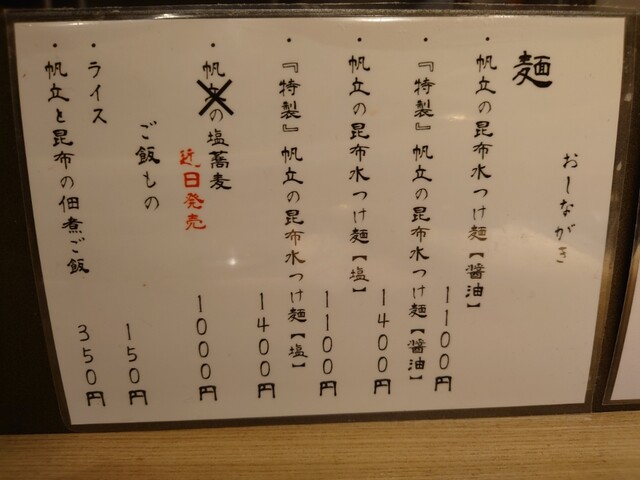 おしながき
麺
・帆立の昆布水つけ麺【醤油】
1100円
・『特製』帆立の昆布水つけ麺【醤油】
1400円
・帆立の昆布水つけ麺【塩】
1100円
・『特製』帆立の昆布水つけ麺【塩】
1400円
・帆立の塩蕎麦
近日発売
1000円
ご飯もの
・ライス
150円
・帆立と昆布の佃煮ご飯
350円